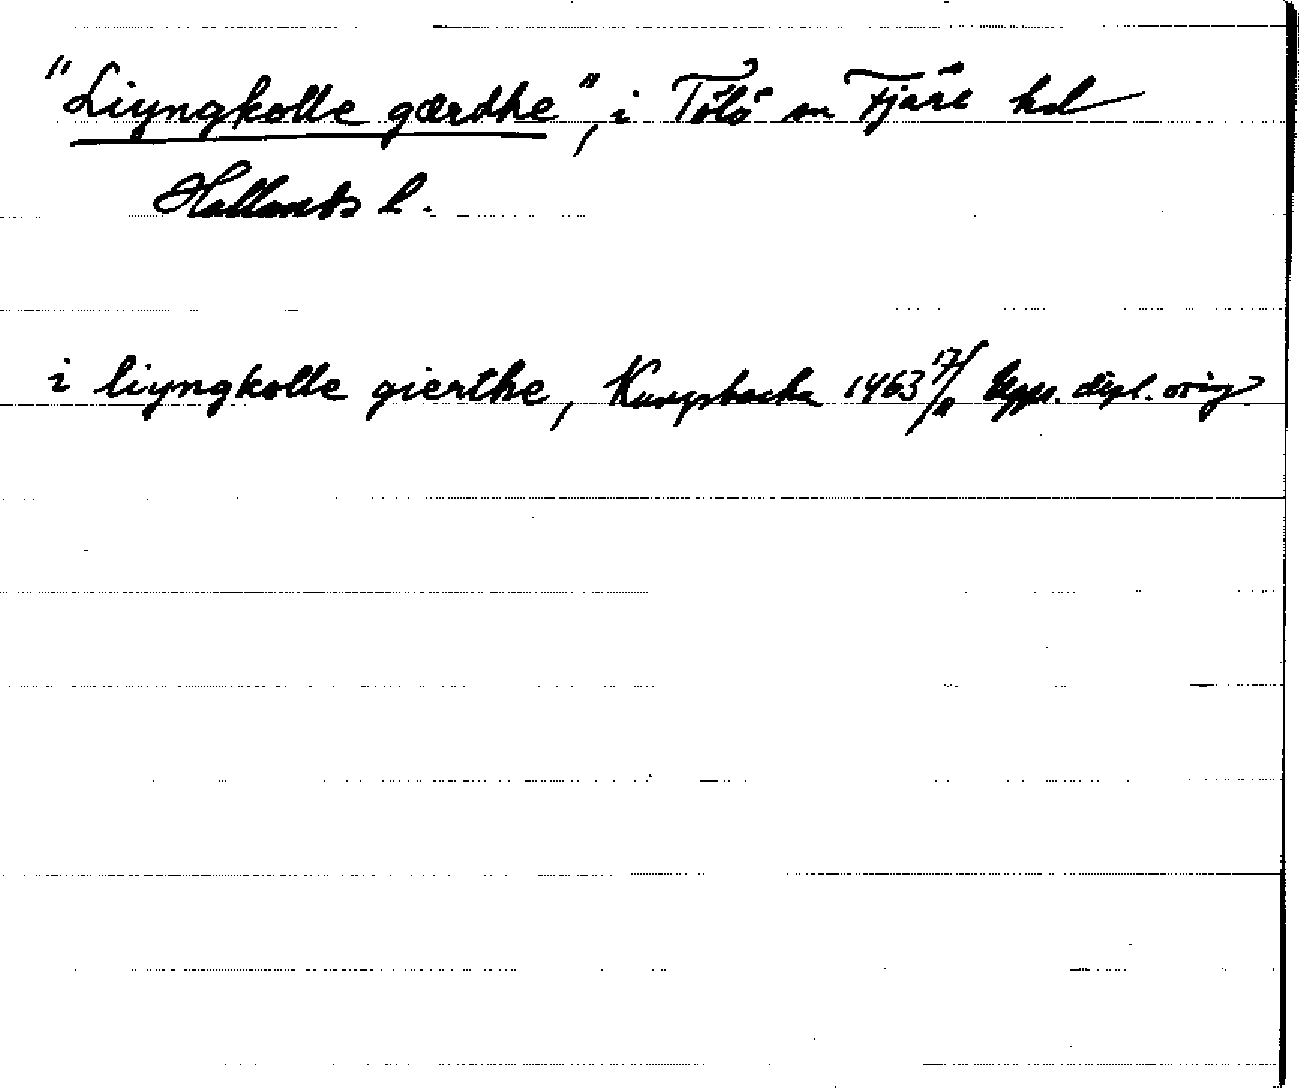 "Liyngkolle gærdhe", i Tölö sn Fjäre hd
Hallands l.
i liyngkolle gierthe, Kungsbacka 1463 17/ Upps. dipl. orig